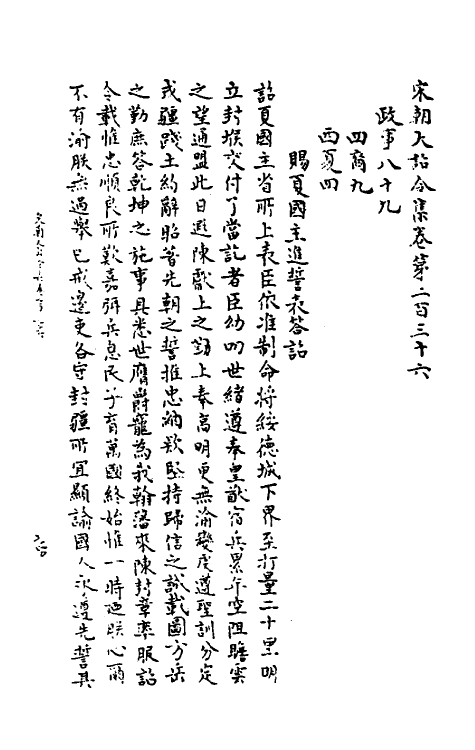 宋朝大詔令集卷第二百三十六
政事八十九
四裔九
西夏四
賜夏國主進誓表答詔
詔夏國主省所上表臣依准制命將綏德城下界至打量二十里明
立封堠交付了當訖者臣幼叨世緒遵奉皇猷宿兵累年空阻瞻雲
之望通盟此日遐陳獻上之勤上奉高明更無渝變虔遵聖訓分定
戎疆踐土約辭昭著先朝之誓推忠納欵堅持歸信之誠載圖方岳
之勤庶答乾坤之施事具悉世膺爵寵為我翰藩來陳封章率服詔
令載惟忠順良所歎嘉弭兵息民子育萬國終始惟一時廼朕心爾
不有渝朕無過舉已戒邊吏各守封疆所宜顯諭國人永遵先誓具